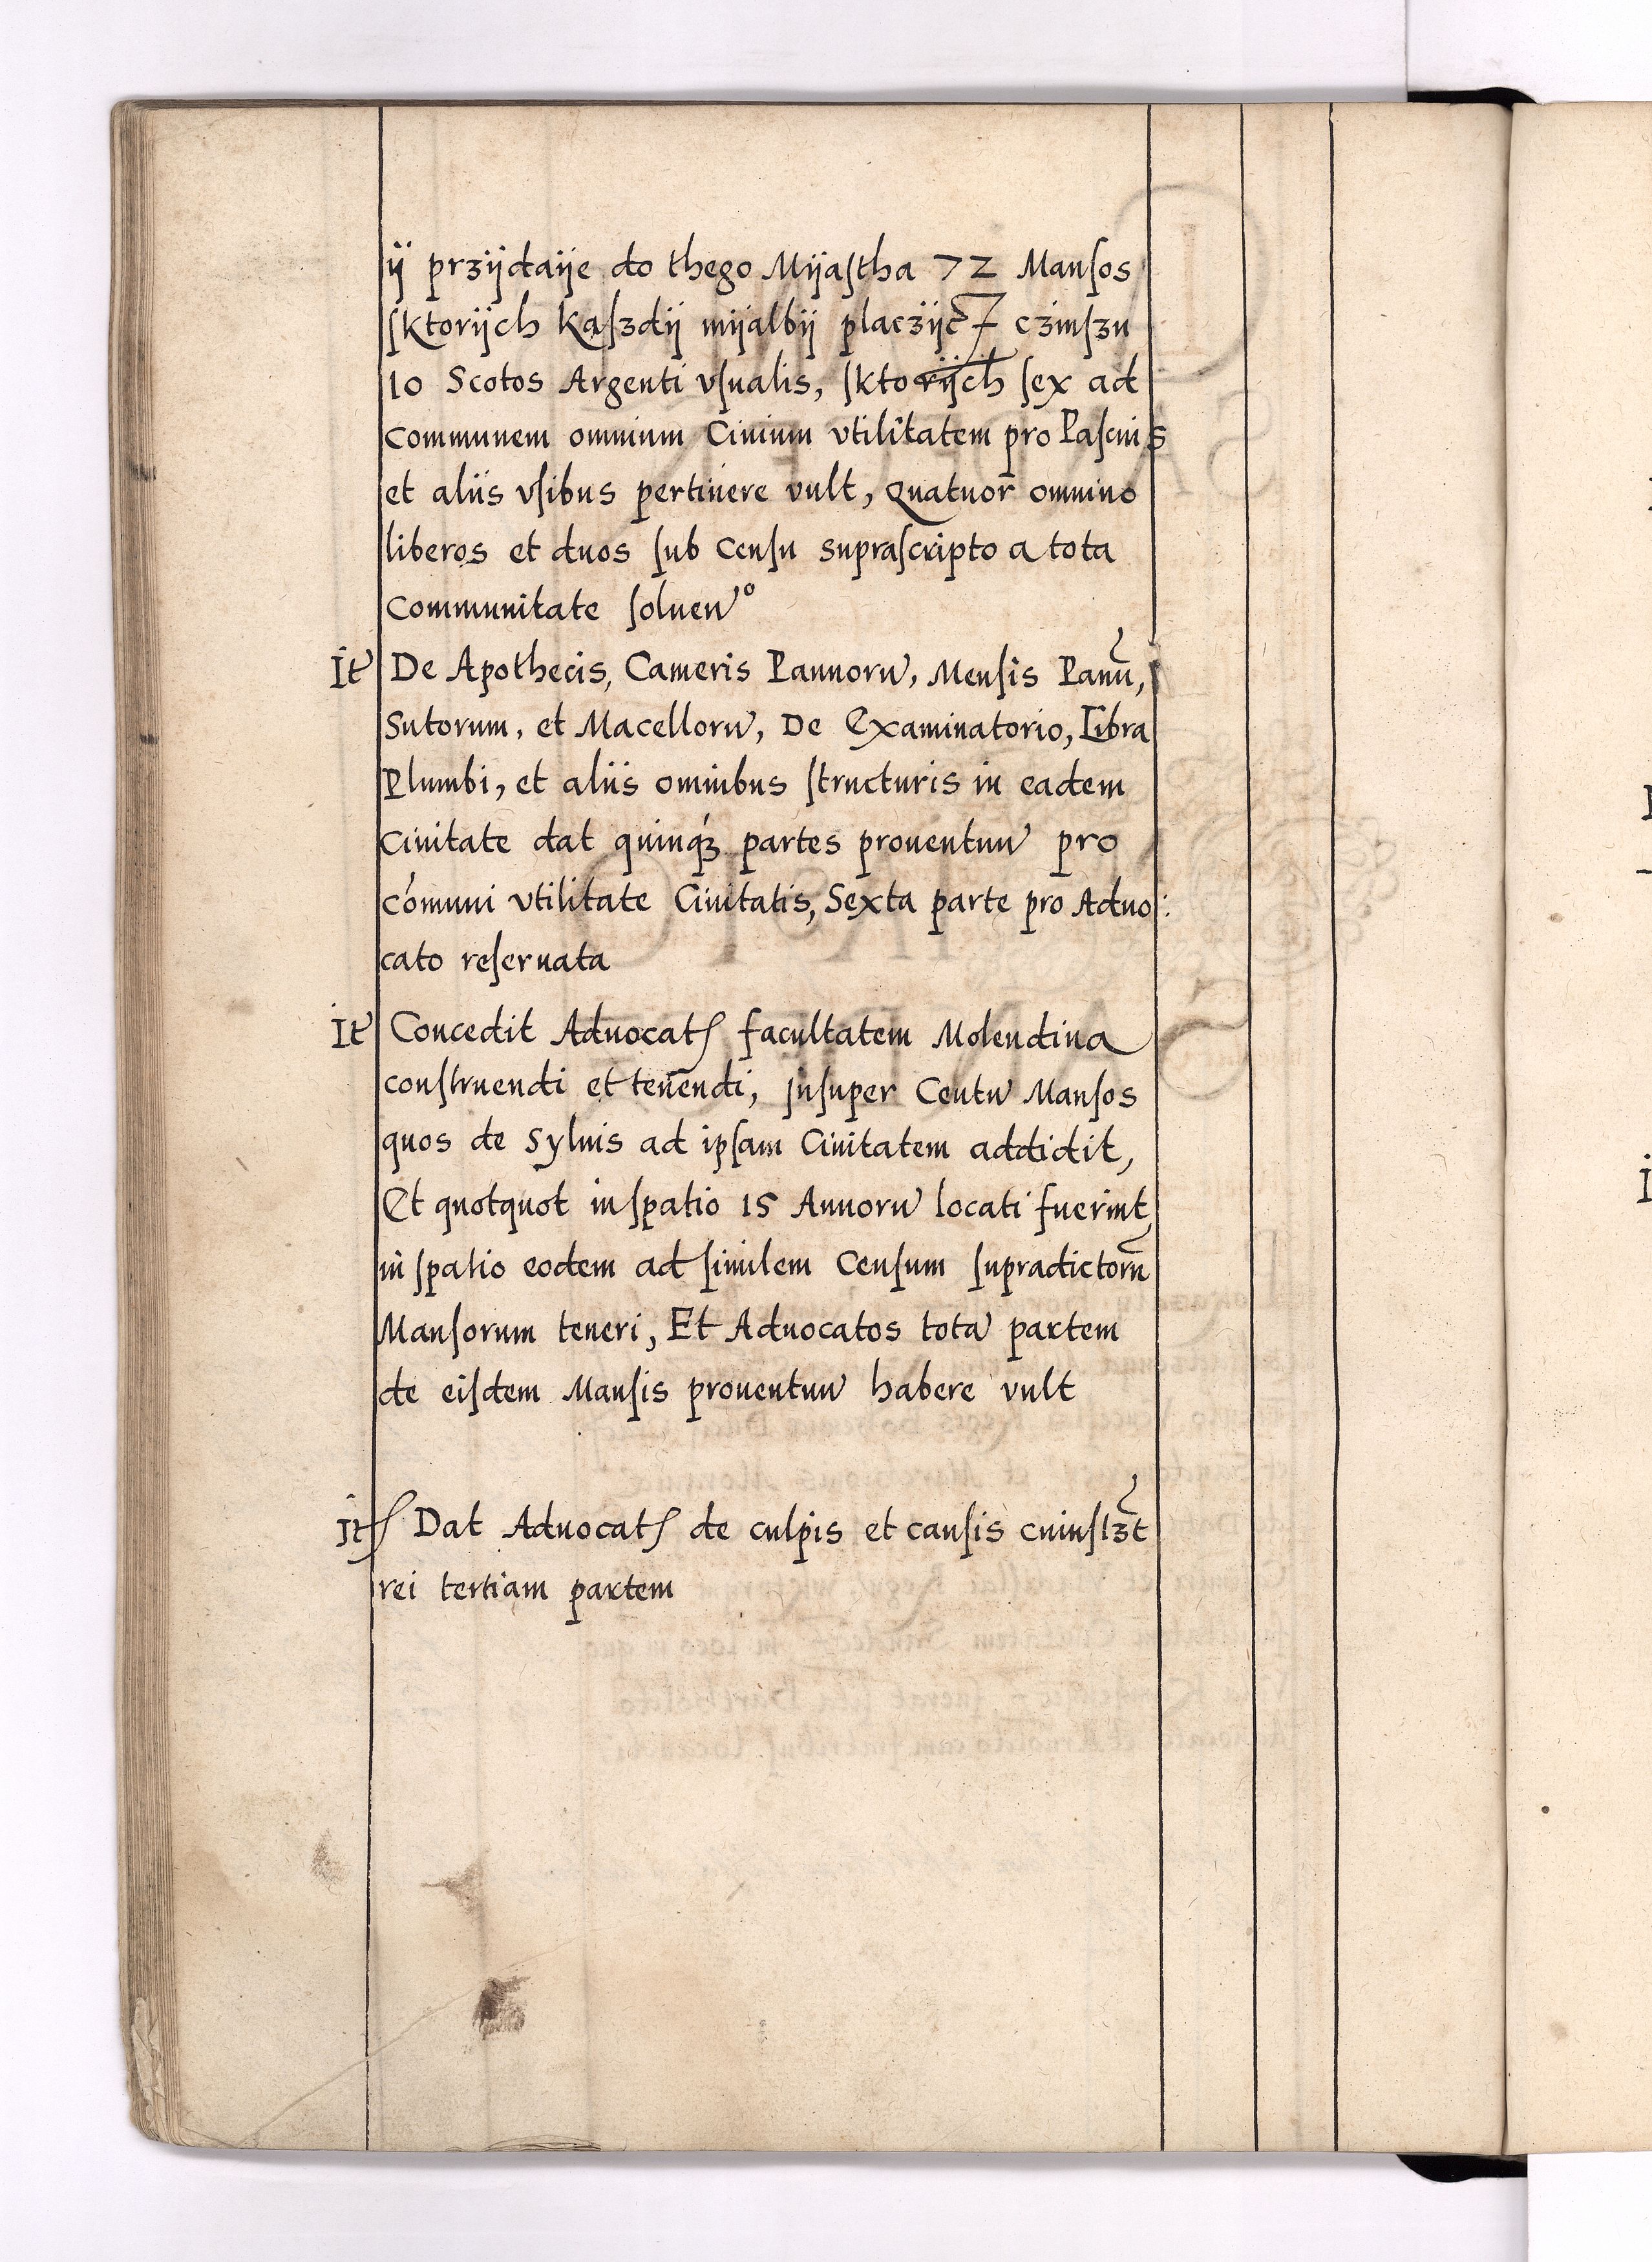 ÿ przÿdaÿe do thego Mÿaſtha 72 Manſos
ſktorÿch Kaſzdÿ mÿalbÿ placzÿć czinſzu
10 Scotos Argenti vſualis, ſktorÿch ſex ad
communem omnium Ciuium vtilitatem pro Paſcuis
et aliis vſibus pertinere vult, Quatuor omnino
liberos et duos ſub Cenſu supraſcripto a tota
Communitate ſoluen°
It De Apothecis, Cameris Pannorũ, Menſis Panũ,
Sutorum, et Macellorũ, De Examinatorio, Libra
Plumbi, et aliis omnibus ſtructuris in eadem
Ciuitate dat quinqꝫ partes prouentuũ pro
cómuni vtilitate Ciuitatis, Sexta parte pro Aduo:
cato reſeruata
It Concedit Aduocatꝭ facultatem Molendina
conſtruendi et tenendi, Inſuper Centũ Manſos
quos de Syluis ad ipſam Ciuitatem addidit,
Et quotquot in ſpatio 15 Annorũ locati fuerint,
in ſpatio eodem ad ſimilem Cenſum ſupradictorũ
Manſorum teneri, Et Aduocatos totã partem
de eiſdem Manſis prouentuũ habere vult
Itꝭ Dat Aduocatꝭ de culpis et cauſis cuiuſlꝫt
rei tertiam partem